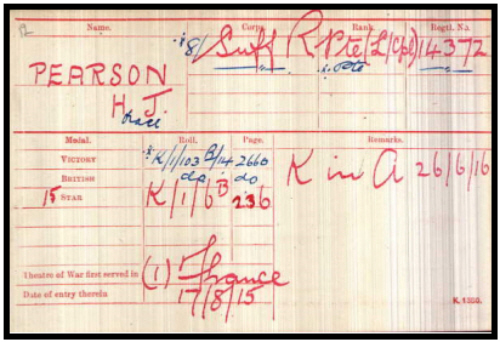 Name. Corps. Rank. Regtl. No.
8/ Suff R Pte (L/Cpl) 14372
PEARSON Pte
H J
Medal. Roll. Page. Remarks.
VICTORY K/1/103 B/14 2660
BRITISH do do K in A 26/6/16
15 STAR K/1/6 B 236
Theatre of War first served in (1) France
Date of entry therein 17/8/15
K. 1380.